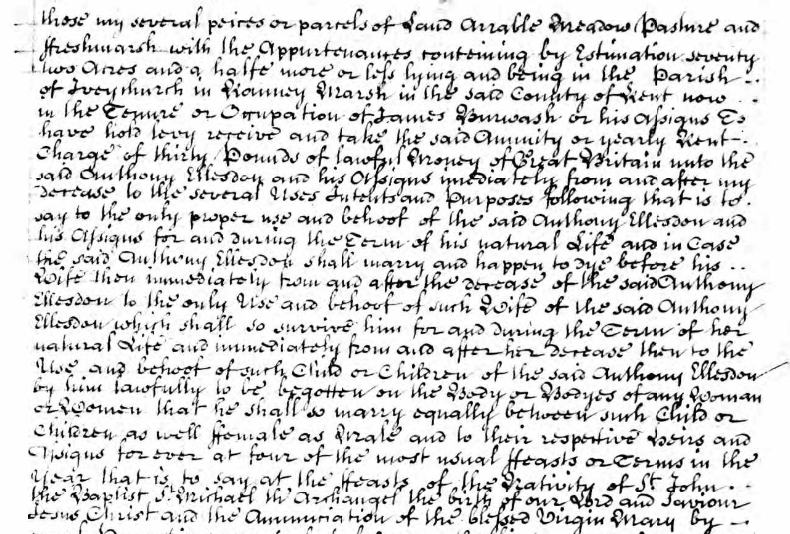 those my several peices or parcels of Land Arrable Meadow Pasture and
ffreshmarsh with the Appurtenances conteining by Estimation seventy
two Acres and a halfe more or less lying and being in the Parish
of Iveychurch in Romney Marsh in the said County of Kent now
in the Tenure or Occupation of James Burwash or his Assigns To
have hold levy receive and take the said Annuity or yearly Rent
Charge of thirty Pounds of lawful Money of Great Britain unto the
said Anthony Ellesdon and his Assigns imediately from and after my
decease to the several Uses Intents and Purposes following that is to
say to the only proper use and behoof of the said Anthony Ellesdon and
his Assigns for and during the Term of his natural Life and in Case
the said Anthony Ellesdon shall marry and happen to dye before his
Wife then immediately from and after the decease of the said Anthony
Ellesdon to the only Use and behoof of such Wife of the said Anthony
Ellesdon which shall so survive him for and during the Term of her
natural Life and immediately from and after her decease then to the
Use and behoof of such Child or Children of the said Anthony Ellesdon
by him lawfully to be begotten on the Body or Bodyes of any Woman
or Women that he shall so marry equally between such Child or
Children as well ffemale as Male and to their respective Heirs and
Assigns for ever at four of the most usual ffeasts or Terms in the
Year that is to say at the ffeasts of the Nativity of St John
the Baptist St Michael the Archangel the birth of our Lord and Saviour
Jesus Christ and the Annunciation of the blessed Virgin Mary by